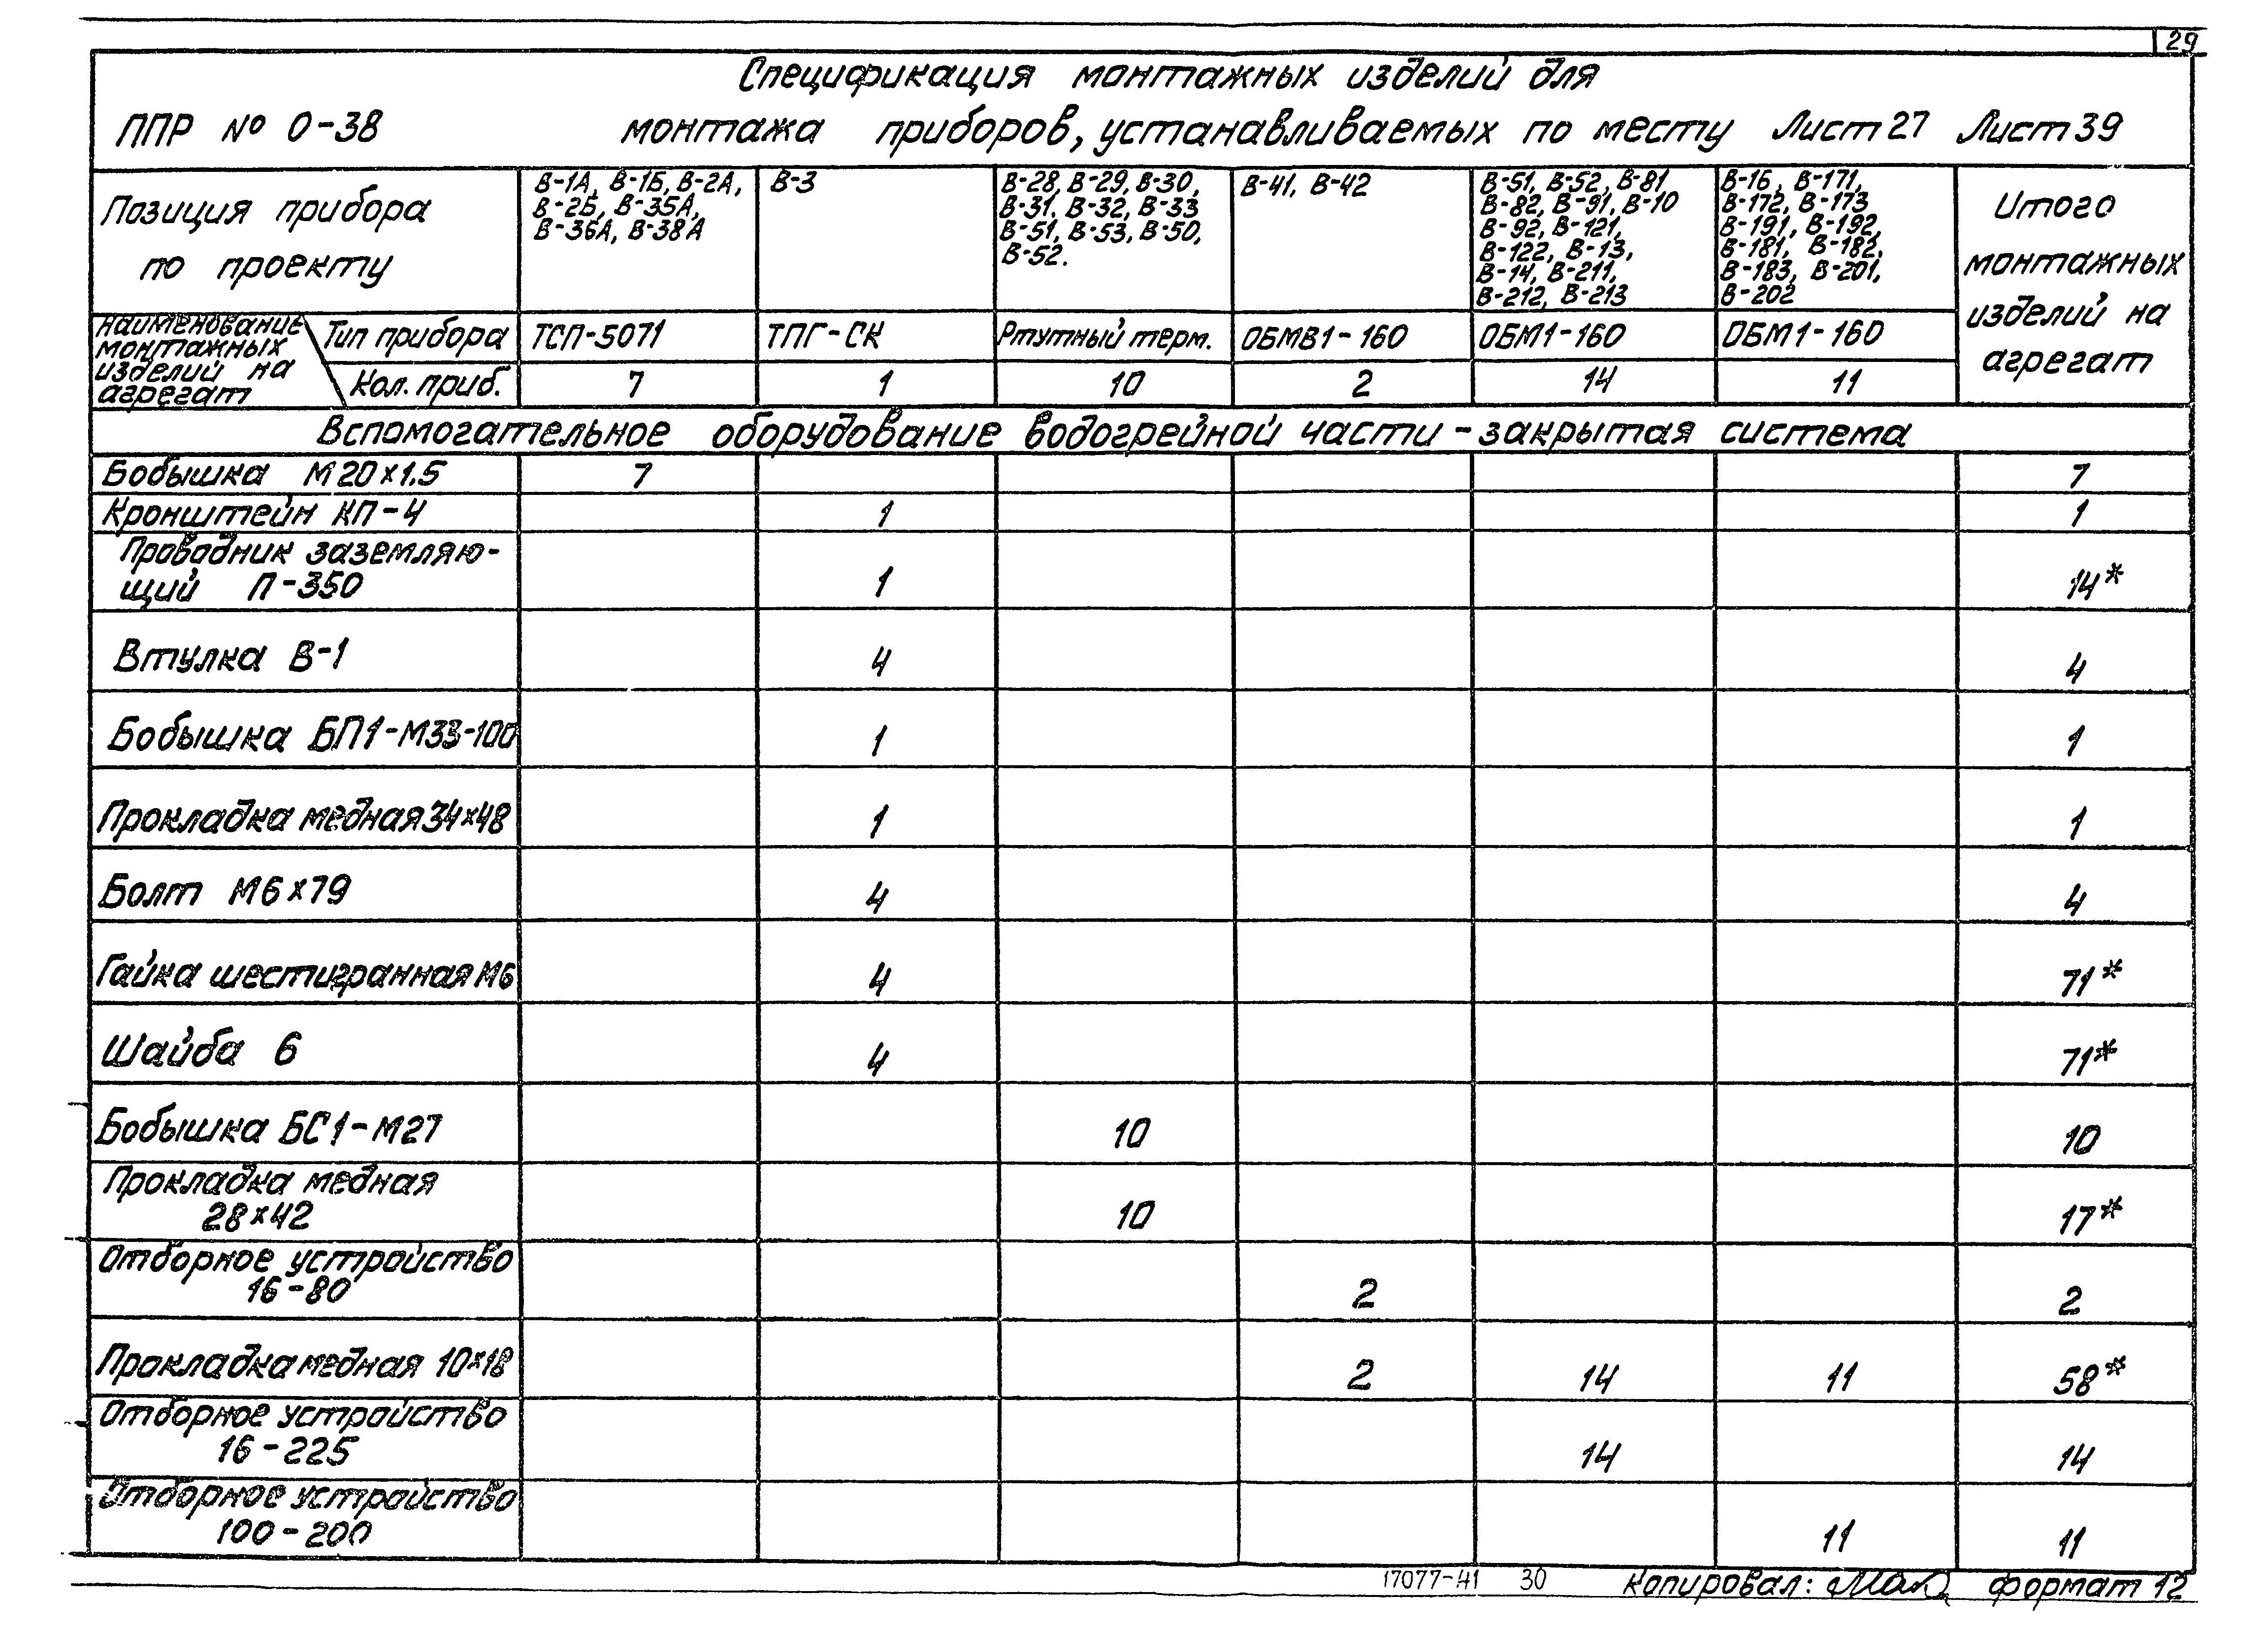 29
Спецификация монтажных изделий для
ППР № 0-38 монтажа приборов, устанавливаемых по месту Лист 27 Лист 39
Позиция прибора
по проекту
В-1А, В-1Б, В-2А,
В-2Б, В-35А,
В-36А, В-38А
В-3
В-28, В-29, В-30,
В-31, В-32, В-33
В-51, В-53, В-50,
В-52.
В-41, В-42
В-51, В-52, В-81
В-82, В-91, В-10
В-92, В-121,
В-122, В-13,
В-14, В-211,
В-212, В-213
В-16, В-171,
В-172, В-173
В-191, В-192,
В-181, В-182,
В-183, В-201,
В-202
Итого
монтажных
изделий на
агрегат
наименование
монтажных
изделий на
агрегат
Тип прибора ТСП-5071 ТПГ-СК Ртутный терм. ОБМВ1-160 ОБМ1-160 ОБМ1-160
Кол. приб. 7 1 10 2 14 11
Вспомогательное оборудование водогрейной части - закрытая система
Бобышка М20х1.5 7 7
Кронштейн КП-4 1 1
Проводник заземляю-
щий П-350 1 14*
Втулка В-1 4 4
Бобышка БП1-М33-100 1 1
Прокладка медная 34х48 1 1
Болт М6х79 4 4
Гайка шестигранная М6 4 71*
Шайба 6 4 71*
Бобышка БС1-М27 10 10
Прокладка медная
28х42 10 17*
Отборное устройство
16-80 2 2
Прокладка медная 10х18 2 14 11 58*
Отборное устройство
16-225 14 14
Отборное устройство
100-200 11 11
17077-41 30 Копировал: формат 12